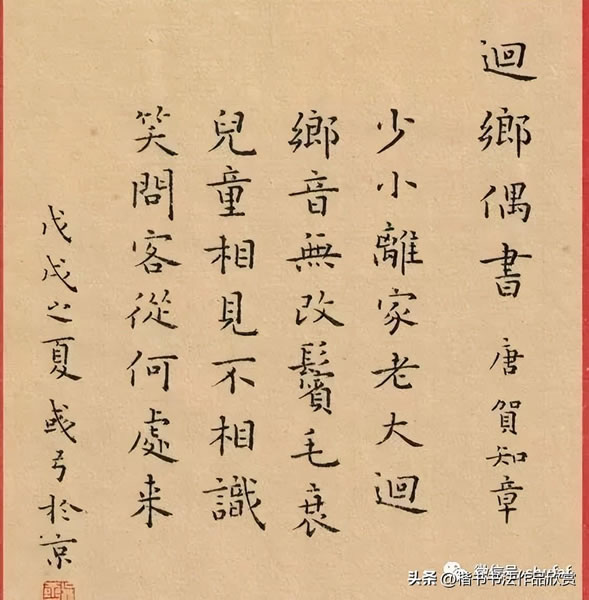 迴鄉偶書 唐 賀知章
少小離家老大迴
鄉音無改鬢毛衰
兒童相見不相識
笑問客從何處来
戊戌之夏 彧弓於京
微信号
头条 @楷书书法作品欣赏